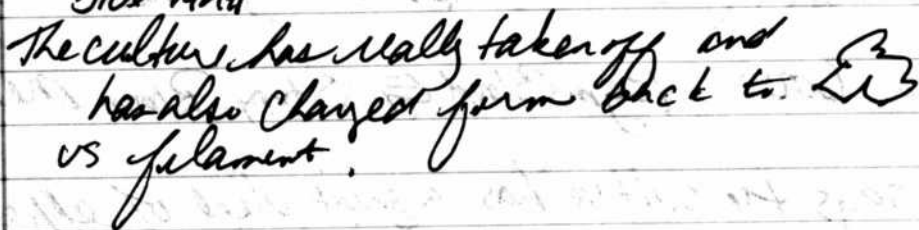 The culture has really taken off and
has also changed form back to
vs filament.